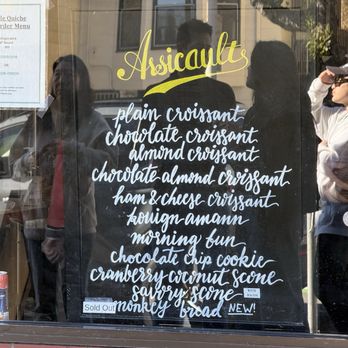 le Quiche
rder Menu
Assicault
plain croissant
chocolate croissant
almond croissant
chocolate almond croissant
ham & cheese croissant
kouign amann
morning bun
chocolate chip cookie
cranberry coconut scone
savory scone
Sold Out
monkey bread NEW!